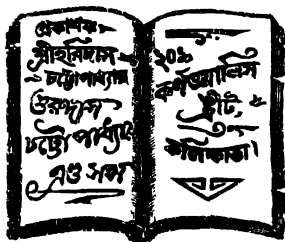 প্রকাশক
শ্রীহরিদাস
চট্টোপাধ্যায়
গুরুদাস
চট্টোপাধ্যায়
এণ্ড সন্স
২০৩।১।১
কর্ণওয়ালিস
ষ্ট্রীট,
কলিকাতা।